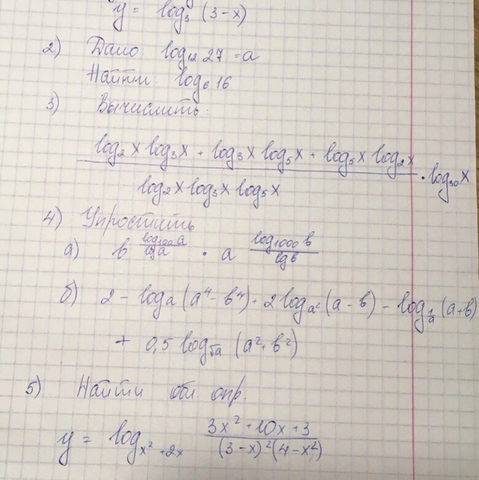 y = log₃ (3-x)
2) Дано log₁₂ 27 = a
Найти log₆ 16
3) Вычислить
(log₂x log₃x + log₃x log₅x + log₅x log₂x) / (log₂x log₃x log₅x) · log₃₀x
4) Упростить
а) b^(log₁₀₀ a / lg a) · a^(log₁₀₀₀ b / lg b)
б) 2 - logₐ(a⁴-b⁴) + 2 log_{a²}(a-b) - log_{1/a}(a+b)
+ 0,5 log_{√a} (a²+b²)
5) Найти обл опр.
y = log_{x²+2x} (3x²+10x+3) / ((3-x)²(4-x²))